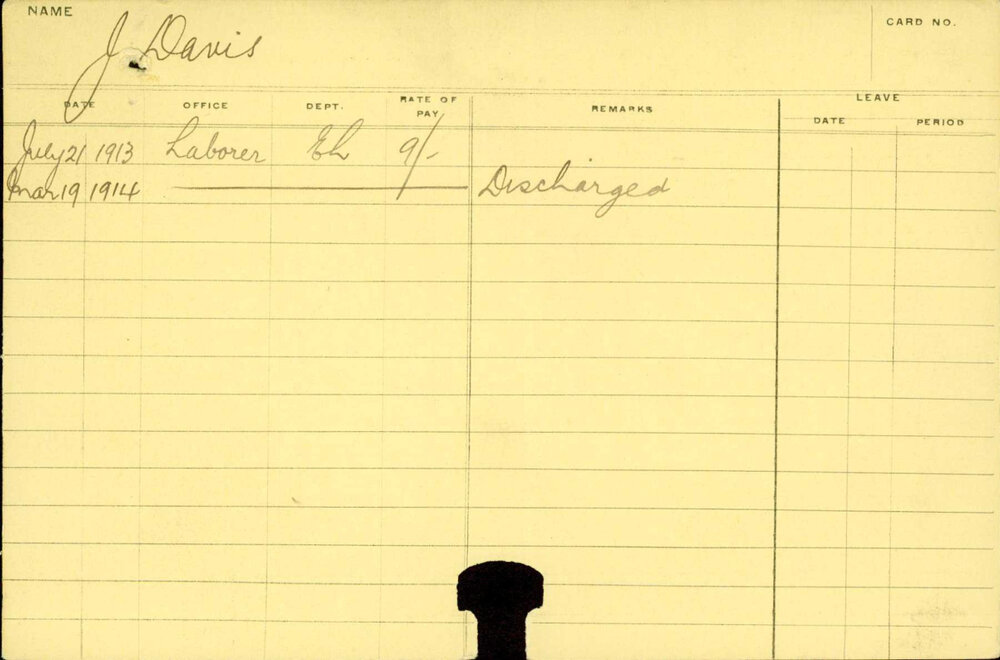 NAME
CARD NO.
J. Davis
DATE OFFICE DEPT. RATE OF PAY REMARKS LEAVE
DATE PERIOD
July 21 1913 Laborer Eh 9/-
Mar 19 1914 Discharged